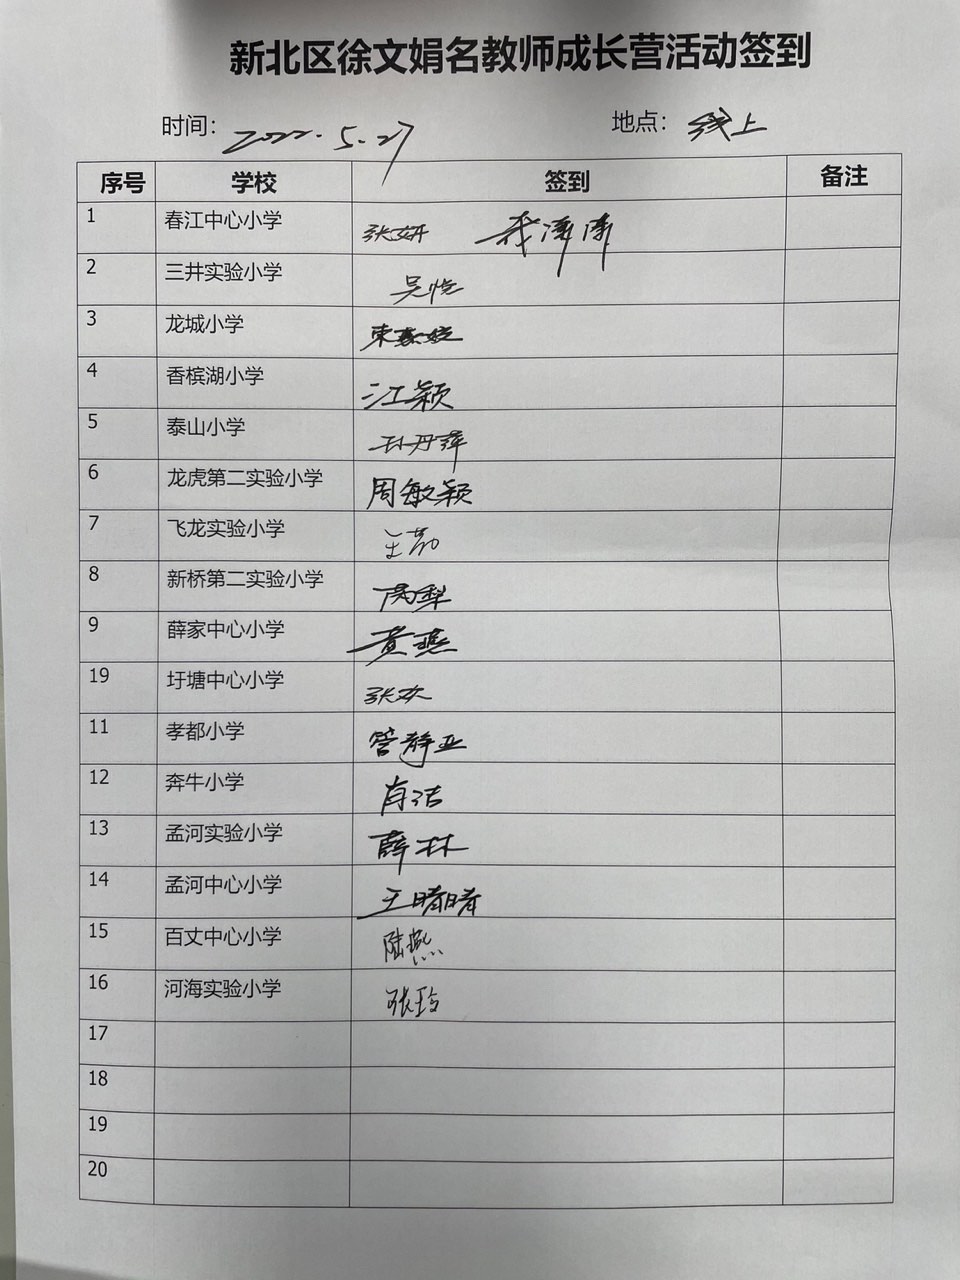 新北区徐文娟名教师成长营活动签到
时间: 2022.5.27 地点: 线上
序号 学校 签到 备注
1 春江中心小学 张妍
2 三井实验小学 吴悦
3 龙城小学
4 香槟湖小学 江颖
5 泰山小学 孙丹萍
6 龙虎第二实验小学 周敏颖
7 飞龙实验小学 王
8 新桥第二实验小学
9 薛家中心小学 黄燕
19 圩塘中心小学 张欢
11 孝都小学 管静亚
12 奔牛小学 肖洁
13 孟河实验小学 薛林
14 孟河中心小学 王晴晴
15 百丈中心小学 陆燕
16 河海实验小学 张玲
17
18
19
20